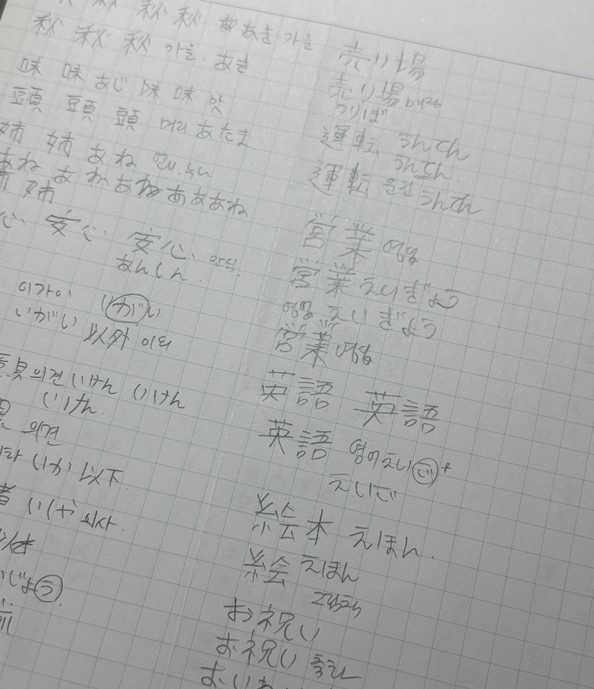 秋 秋 秋 あき 가을
秋 秋 秋 가을 あき
味 味 あじ 味 味 맛
頭 頭 頭 머리 あたま
姉 姉 あね 언니, 누나
あね あね あね ああ あね
姉
安心 安心
あんしん
이가이 いがい
いがい 以外 이외
意見 의견 いけん いけん
いけん
의견
いか 以下
いしゃ 의사
売り場
売り場
うりば
運転 うんてん
うんてん
運転 운전 うんてん
営業 영업
営業 えいぎょう
영업 えいぎょう
営業 영업
英語 英語
英語 영어 えいご
えいご
絵本 えほん
絵 えほん
그림책
お祝い
お祝い 축하